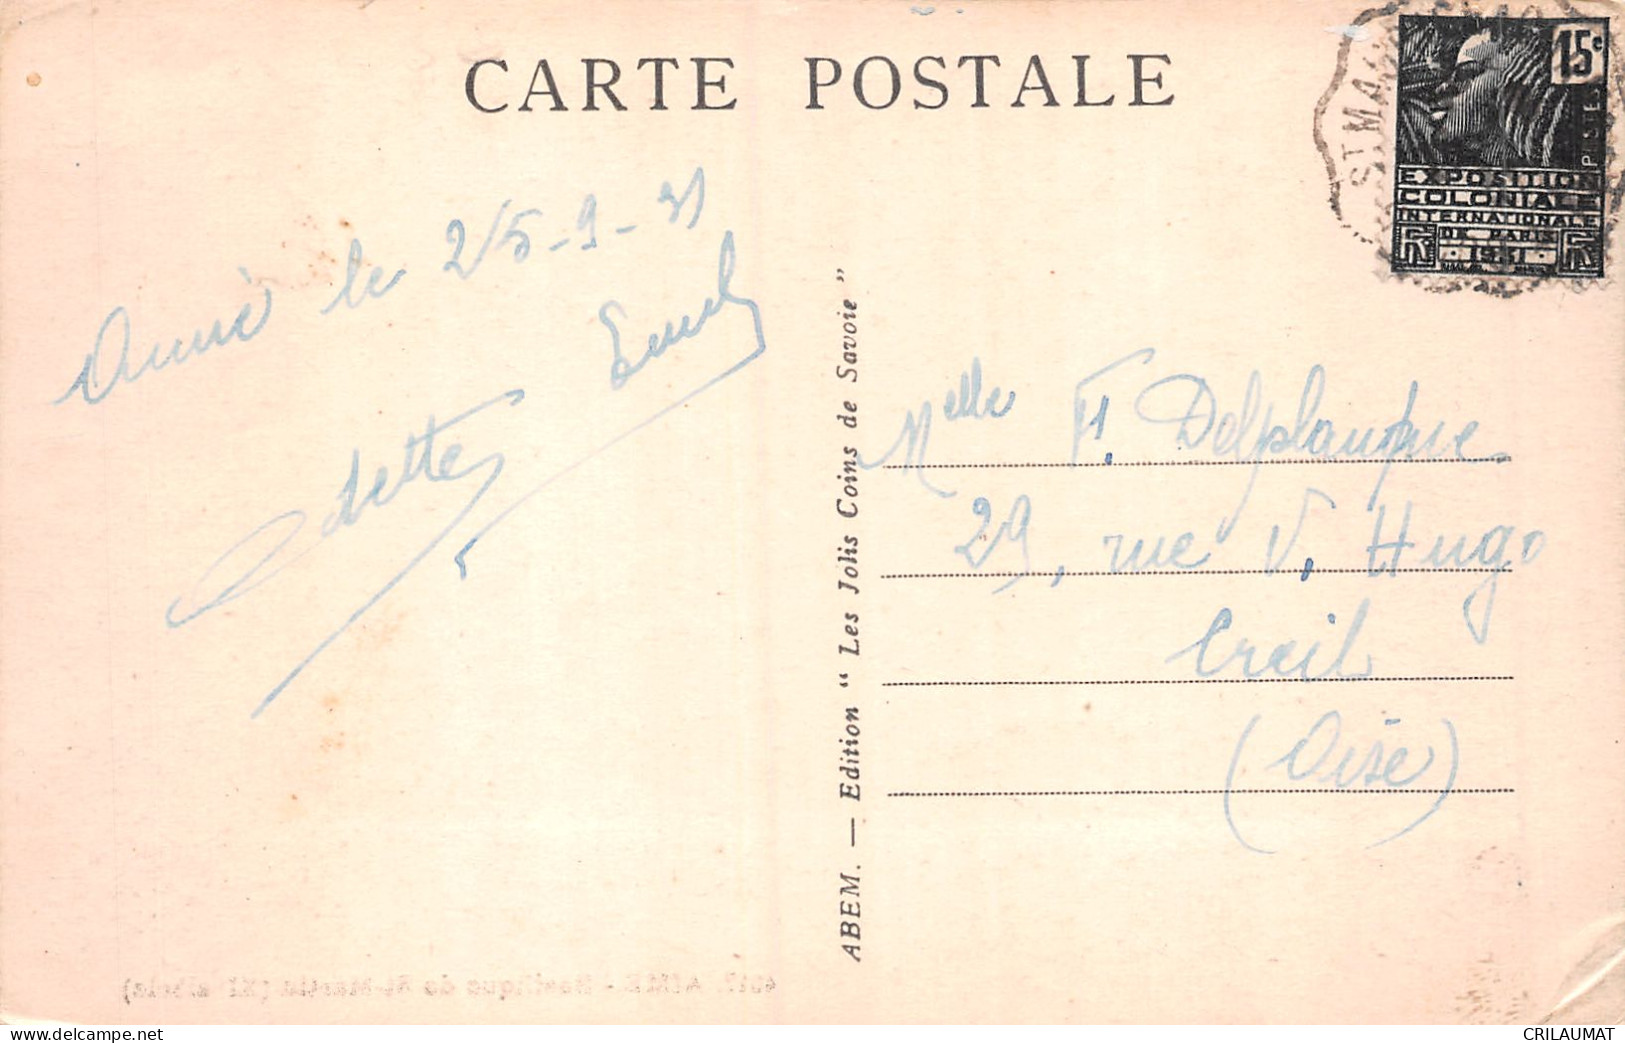 CARTE POSTALE
15c
POSTES
EXPOSITION
COLONIALE
INTERNATIONALE
DE PARIS
1931
RF RF
ST MA
le 25-9-31
Odette
ABEM. — Edition “ Les Jolis Coins de Savoie ”
Melle F. Delplanque
29, rue V. Hugo
Creil
(Oise)
4017. AIME - Basilique de St-Martin (XI siècle)
CRILAUMAT